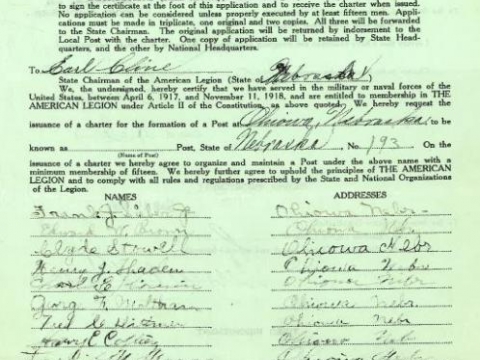 to sign the certificate at the foot of this application and to receive the charter when issued.
No application can be considered unless properly executed by at least fifteen men. Applications
must be made in triplicate, one original and two copies. All three will be forwarded
to the State Chairman. The original application will be returned by indorsement to the
Local Post with the charter. One copy of application will be retained by State Head-
quarters, and the other by National Headquarters.
To Earl Cline
State Chairman of the American Legion (State of Nebraska),
We, the undersigned, hereby certify that we have served in the military or naval forces of the
United States, between April 6, 1917, and November 11, 1918, and are entitled to membership in THE
AMERICAN LEGION under Article II of the Constitution, as above quoted. We hereby request the
issuance of a charter for the formation of a Post at Ohiowa, Nebraska to be
known as Post, State of Nebraska No. 193 On the
(Name of Post)
issuance of a charter we hereby agree to organize and maintain a Post under the above name with a
minimum membership of fifteen. We hereby further agree to uphold the principles of THE AMERICAN
LEGION and to comply with all rules and regulations prescribed by the State and National Organizations
of the Legion.
NAMES ADDRESSES
Frank J. Ohiowa Nebr
Edward Ohiowa
Clyde Stowell Ohiowa Nebr
Henry J. Ohiowa Nebr
Ohiowa Nebr
Georg F. Ohiowa Nebr
Fred Ohiowa Nebr
Ohiowa Neb